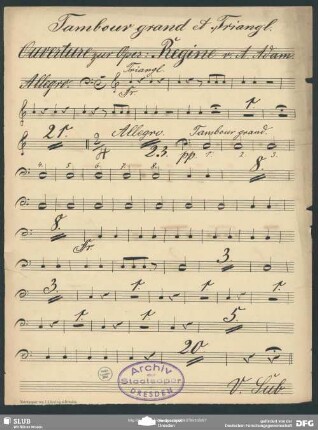 Tambour grand et Triangl.
Ouverture zur Oper: Regine v. A. Adam
Allegro. Triangl.
21. Allegro. Tambour grand.
23. pp 1. 2. 3.
4. 5. 6. 7. 8. 8.
8.
3
3. 5.
20
V. Sub.
Archiv
Staatsoper
DRESDEN
SLUB
DFG